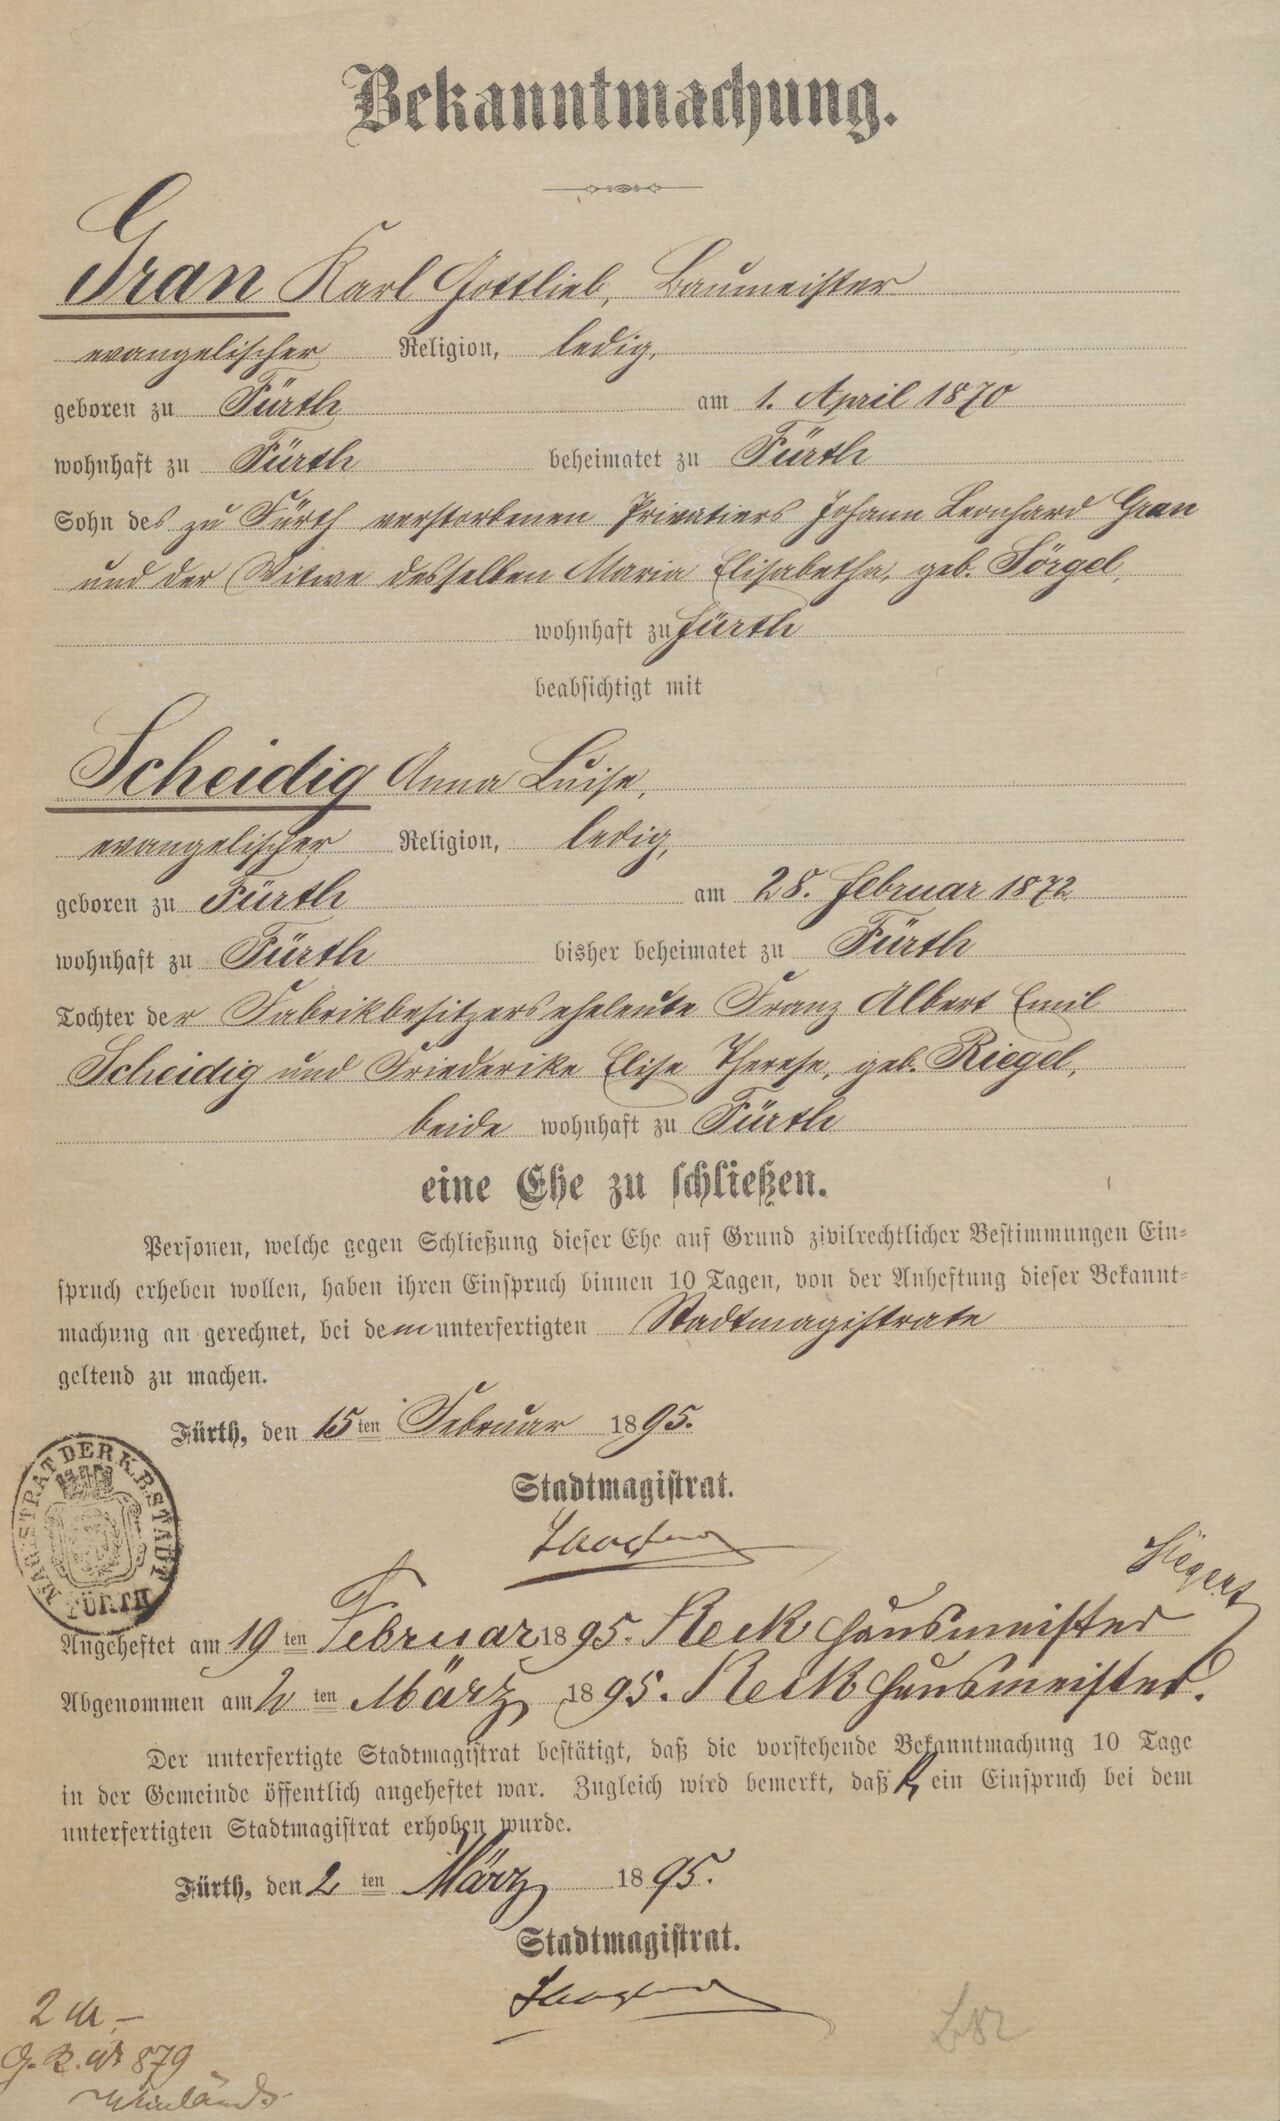 Bekanntmachung.
Gran Karl Gottlieb, Baumeister
evangelischer Religion, ledig,
geboren zu Fürth am 1. April 1870
wohnhaft zu Fürth beheimatet zu Fürth
Sohn des zu Fürth verstorbenen Privatiers Johann Leonhard Gran
und der Witwe desselben Maria Elisabetha, geb. Sörgel,
wohnhaft zu Fürth
beabsichtigt mit
Scheidig Anna Luise,
evangelischer Religion, ledig,
geboren zu Fürth am 28. Februar 1872
wohnhaft zu Fürth bisher beheimatet zu Fürth
Tochter der Fabrikbesitzerseheleute Franz Albert Emil
Scheidig und Friederike Elise Therese, geb. Riegel,
beide wohnhaft zu Fürth
eine Ehe zu schließen.
Personen, welche gegen Schließung dieser Ehe auf Grund zivilrechtlicher Bestimmungen Ein-
spruch erheben wollen, haben ihren Einspruch binnen 10 Tagen, von der Anheftung dieser Bekannt-
machung an gerechnet, bei dem unterfertigten Stadtmagistrate
geltend zu machen.
Fürth, den 15ten Februar 1895.
MAGISTRAT DER K.B. STADT FÜRTH
Stadtmagistrat.
Angeheftet am 19ten Februar 1895. Reck Hausmeister
Abgenommen am 2ten März 1895. Reck Hausmeister.
Der unterfertigte Stadtmagistrat bestätigt, daß die vorstehende Bekanntmachung 10 Tage
in der Gemeinde öffentlich angeheftet war. Zugleich wird bemerkt, daß kein Einspruch bei dem
unterfertigten Stadtmagistrat erhoben wurde.
Fürth, den 2ten März 1895.
Stadtmagistrat.
2 M. –
G. R. № 879